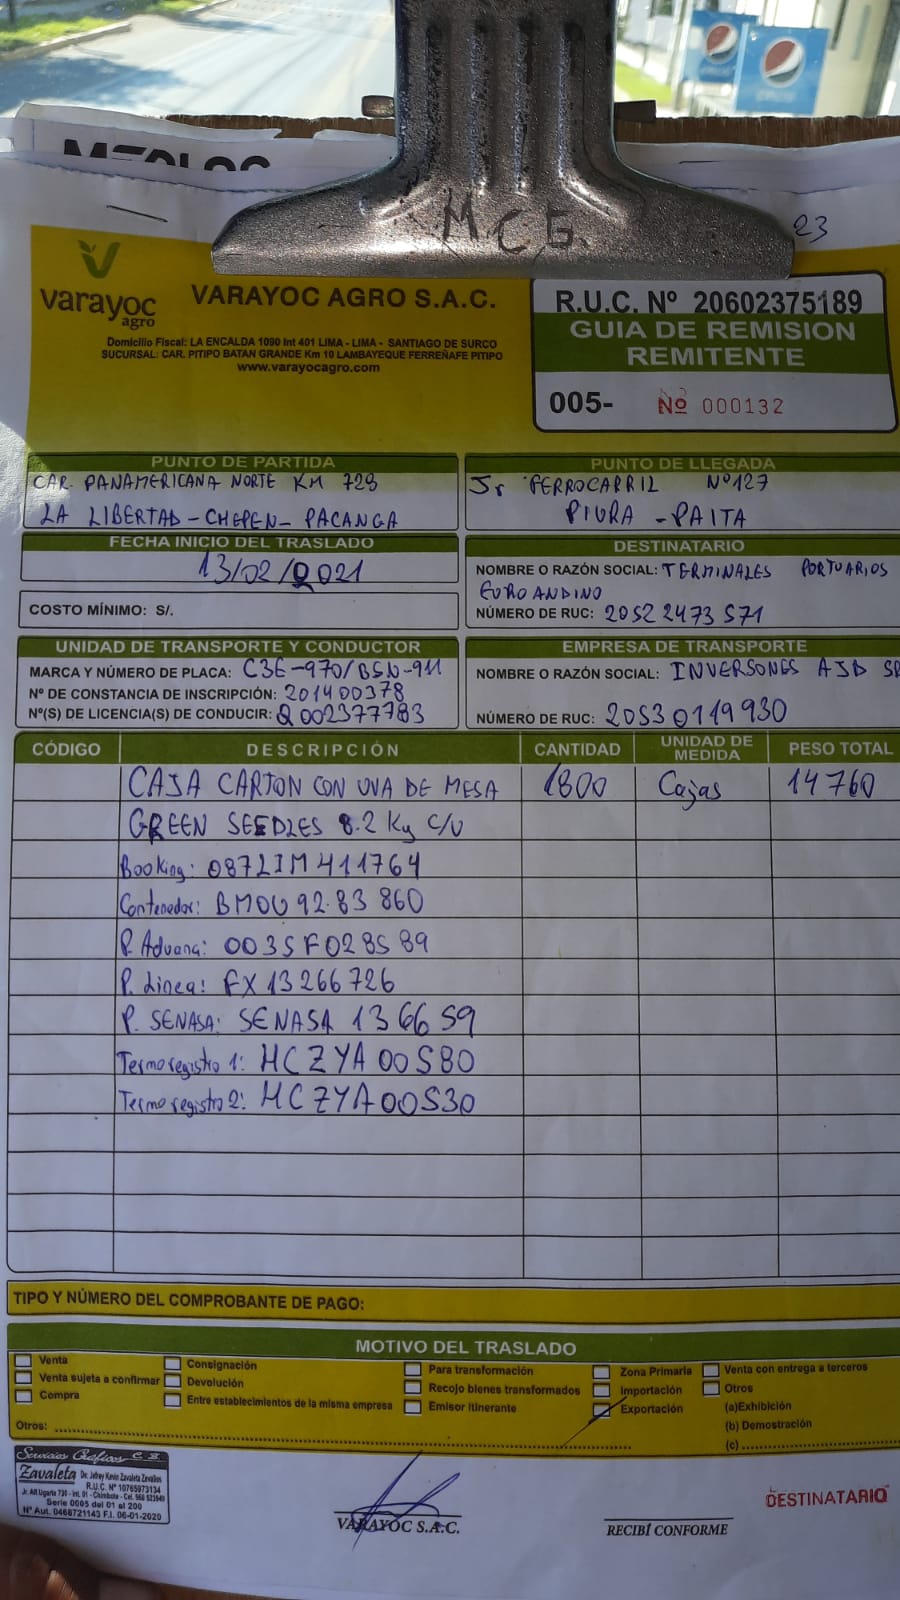 M.C.G.
23
varayoc
agro
VARAYOC AGRO S.A.C.
Domicilio Fiscal: LA ENCALDA 1090 Int 401 LIMA - LIMA - SANTIAGO DE SURCO
SUCURSAL: CAR. PITIPO BATAN GRANDE Km 10 LAMBAYEQUE FERREÑAFE PITIPO
www.varayocagro.com
R.U.C. Nº 20602375189
GUIA DE REMISION
REMITENTE
005- Nº 000132
PUNTO DE PARTIDA
CAR. PANAMERICANA NORTE KM 729
LA LIBERTAD - CHEPEN - PACANGA
PUNTO DE LLEGADA
Jr FERROCARRIL Nº127
PIURA - PAITA
FECHA INICIO DEL TRASLADO
13/02/2021
COSTO MÍNIMO: S/.
DESTINATARIO
NOMBRE O RAZÓN SOCIAL: TERMINALES PORTUARIOS
EUROANDINO
NÚMERO DE RUC: 20522473571
UNIDAD DE TRANSPORTE Y CONDUCTOR
MARCA Y NÚMERO DE PLACA: C3E-970/BSN-911
Nº DE CONSTANCIA DE INSCRIPCIÓN: 201400378
Nº(S) DE LICENCIA(S) DE CONDUCIR: Q002377783
EMPRESA DE TRANSPORTE
NOMBRE O RAZÓN SOCIAL: INVERSONES AJD SR
NÚMERO DE RUC: 20530119930
CÓDIGO DESCRIPCIÓN CANTIDAD UNIDAD DE MEDIDA PESO TOTAL
CAJA CARTON CON UVA DE MESA 1800 Cajas 14760
GREEN SEEDLES 8.2 Kg C/U
Booking: 087LIM411764
Contenedor: BMOU 92.83 860
P. Aduana: 0035F028589
P. Linea: FX13266726
P. SENASA: SENASA 136659
Termoregistro 1: HCZYA00580
Termoregistro 2: HCZYA00530
TIPO Y NÚMERO DEL COMPROBANTE DE PAGO:
MOTIVO DEL TRASLADO
Venta
Venta sujeta a confirmar
Compra
Consignación
Devolución
Entre establecimientos de la misma empresa
Para transformación
Recojo bienes transformados
Emisor Itinerante
Zona Primaria
Importación
Exportación
Venta con entrega a terceros
Otros
(a)Exhibición
(b) Demostración
(c)
Otros:
Servicios Gráficos C.S.
Zavaleta De: Jefrey Kevin Zavaleta Zevallos
R.U.C. Nº 10765973134
Jr. Alf Ugarte 730 - Int. 01 - Chimbote - Cel. 968 523949
Serie 0005 del 01 al 200
Nº Aut. 0468721143 F.I. 06-01-2020
VARAYOC S.A.C.
RECIBÍ CONFORME
DESTINATARIO